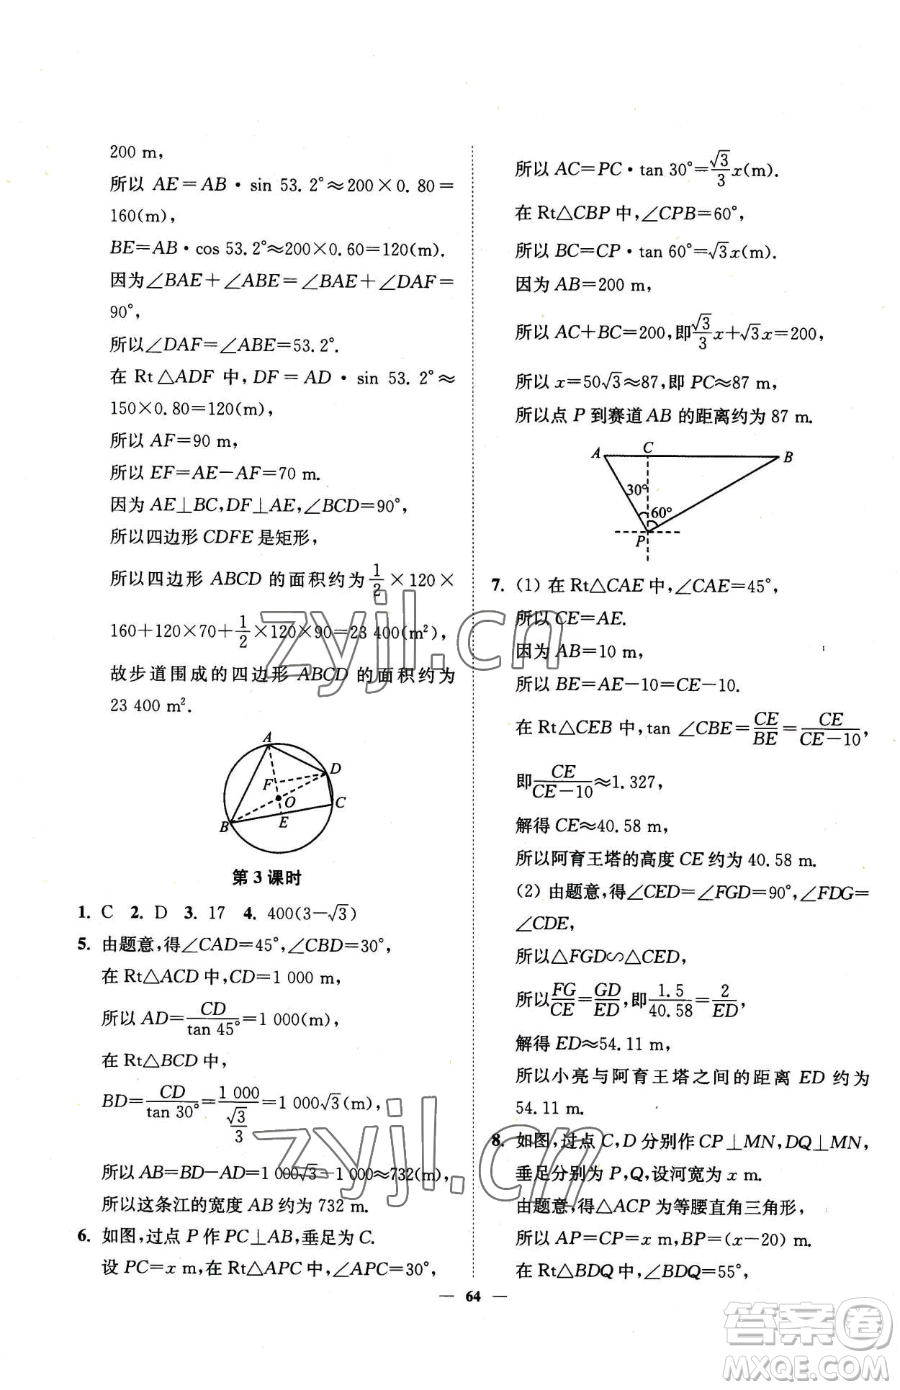 200 m,
所以 AE=AB·sin 53.2°≈200×0.80=
160(m),
BE=AB·cos 53.2°≈200×0.60=120(m).
因为∠BAE+∠ABE=∠BAE+∠DAF=
90°,
所以∠DAF=∠ABE=53.2°.
在 Rt△ADF 中,DF=AD·sin 53.2°≈
150×0.80=120(m),
所以 AF=90 m,
所以 EF=AE-AF=70 m.
因为 AE⊥BC,DF⊥AE,∠BCD=90°,
所以四边形 CDFE 是矩形,
所以四边形 ABCD 的面积约为 1/2 ×120×
160+120×70+1/2×120×90=23 400(m²),
故步道围成的四边形 ABCD 的面积约为
23 400 m².
A
D
F
O
C
B
E
第 3 课时
1. C 2. D 3. 17 4. 400(3-√3)
5. 由题意,得∠CAD=45°,∠CBD=30°,
在 Rt△ACD 中,CD=1 000 m,
所以 AD=CD/tan 45°=1 000(m),
在 Rt△BCD 中,
BD=CD/tan 30°=1 000/(√3/3)=1 000√3(m),
所以 AB=BD-AD=1 000√3-1 000≈732(m),
所以这条江的宽度 AB 约为 732 m.
6. 如图,过点 P 作 PC⊥AB,垂足为 C.
设 PC=x m,在 Rt△APC 中,∠APC=30°,
所以 AC=PC·tan 30°=√3/3 x(m).
在 Rt△CBP 中,∠CPB=60°,
所以 BC=CP·tan 60°=√3x(m).
因为 AB=200 m,
所以 AC+BC=200,即√3/3 x+√3x=200,
所以 x=50√3≈87,即 PC≈87 m,
所以点 P 到赛道 AB 的距离约为 87 m.
A C B
30°
60°
P
7. (1) 在 Rt△CAE 中,∠CAE=45°,
所以 CE=AE.
因为 AB=10 m,
所以 BE=AE-10=CE-10.
在 Rt△CEB 中,tan ∠CBE=CE/BE=CE/(CE-10),
即CE/(CE-10)≈1.327,
解得 CE≈40.58 m,
所以阿育王塔的高度 CE 约为 40.58 m.
(2) 由题意,得∠CED=∠FGD=90°,∠FDG=
∠CDE,
所以△FGD∽△CED,
所以FG/CE=GD/ED,即1.5/40.58=2/ED,
解得 ED≈54.11 m,
所以小亮与阿育王塔之间的距离 ED 约为
54.11 m.
8. 如图,过点 C,D 分别作 CP⊥MN,DQ⊥MN,
垂足分别为 P,Q,设河宽为 x m.
由题意,得△ACP 为等腰直角三角形,
所以 AP=CP=x m,BP=(x-20) m.
在 Rt△BDQ 中,∠BDQ=55°,
— 64 —
zyjl.cn
zyjl.cn
答案圈
MXQE.COM